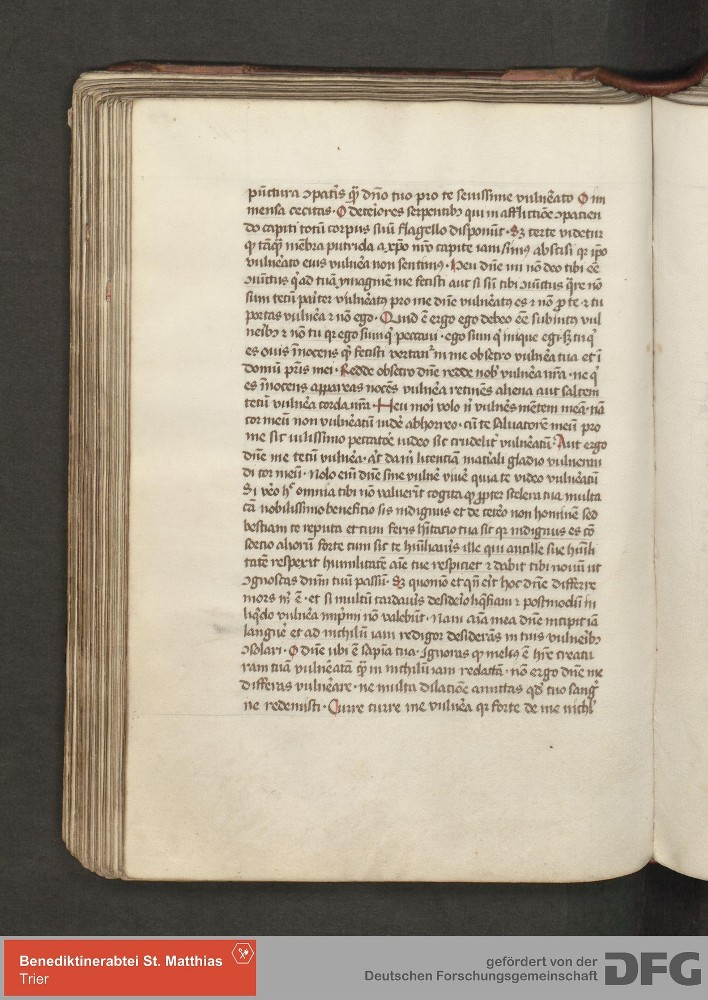 pūctura ↄpatīs qͫ dn̄o tuo pro te seuissime vulnēato O im
mensa cecitas · O deteriores serpentibꝫ qui in afflictiōe ↄpacien
do capiti totū corpus suū flagello disponūt · Sꝫ certe videtur
ꝙ tāꝙ mēbra putrida a xp̄o nr̄o capite iam simꝰ abscisi qꝛ ip̄o
vulnēato eius vulnēa non sentimꝰ · Heu dn̄e mi nō deo tibi ēē
ↄiūctus qͥ ad tuā ymaginē me fecisti aut si sū tibi ↄiūctus qͣre nō
sum tecū pariter vulnēatꝰ pro me dn̄e vulnēatꝰ es ⁊ nō ꝓ te ⁊ tu
portas vulnēa ⁊ nō ego · Quid ē ergo ego debeo ēē subiectꝰ vul
neibꝫ ⁊ nō tu qꝛ ego sum qͥ peccaui · ego sum qͥ inique egi · sꝫ tu qͥ
es ouis īnocens qͥ fecisti portantͬ in me obsecro vulnēa tua et ī
domū pr̄is mei · Redde obsecro dn̄e redde nobͥ vulnēa nr̄a · ne qͥ
es īnocens appareas nocēs vulnēa retinēs aliena aut saltem
tecū vulnēa corda nr̄a · Heu moi volo nͥ vulnēs mētem meā · nā
cor meū non vulnēatū vidē abhorreo · cū te saluatorē meū pro
me sic vilissimo peccatōe video sic crudelit͛ vulnēatū · Aut ergo
dn̄e me tecū vulnēa · aͭ da mͥ licentiam mat͛iali gladio vulneran
di cor meū · Nolo eīm dn̄e sine vulnē viūe quia te video vulnēatū
Si vēo hͦ omnia tibi nō valuerūt cogita ꝙ ꝓpter scelera tua multa
tā nobilissimo beneficio sis indignus et de cetēo non hominē sed
bestiam te reputa et cum feris hītacio tua sit qꝛ indignus es cō
socio aliorū forte cum sic te hūiliauīs ille qui ancille sue hūili
tatē respexit humilitatē aīe tue respiciet ⁊ dabit tibi nouū ut
ↄgnoscas dn̄m tuū passū · Sꝫ quomō et qn̄ eīt hoc dn̄e differre
mors mͥ ē · et si multū tardauīs desidēio liq̄fiam ⁊ postmodū in
liqͥdo vulnēa imp̄mi nō valebūt · Nam aīa mea dn̄e incipit iā
languē et ad nichilū iam redigor desiderās in tuis vulneibꝫ
ↄsolari · O dn̄e ubi ē sapīa tua · Ignoras ꝙ melꝰ ē hr̄e creatu
ram tuā vulnēatā qͫ in nichilū iam redactā · nō ergo dn̄e me
differas vulnēare · ne multa dilaciōe amittas qd̄ tuo sang͛
ne redemisti · Curre curre me vulnēa qꝛ forte de me nichͥ
Benediktinerabtei St. Matthias
Trier
gefördert von der
Deutschen Forschungsgemeinschaft
DFG